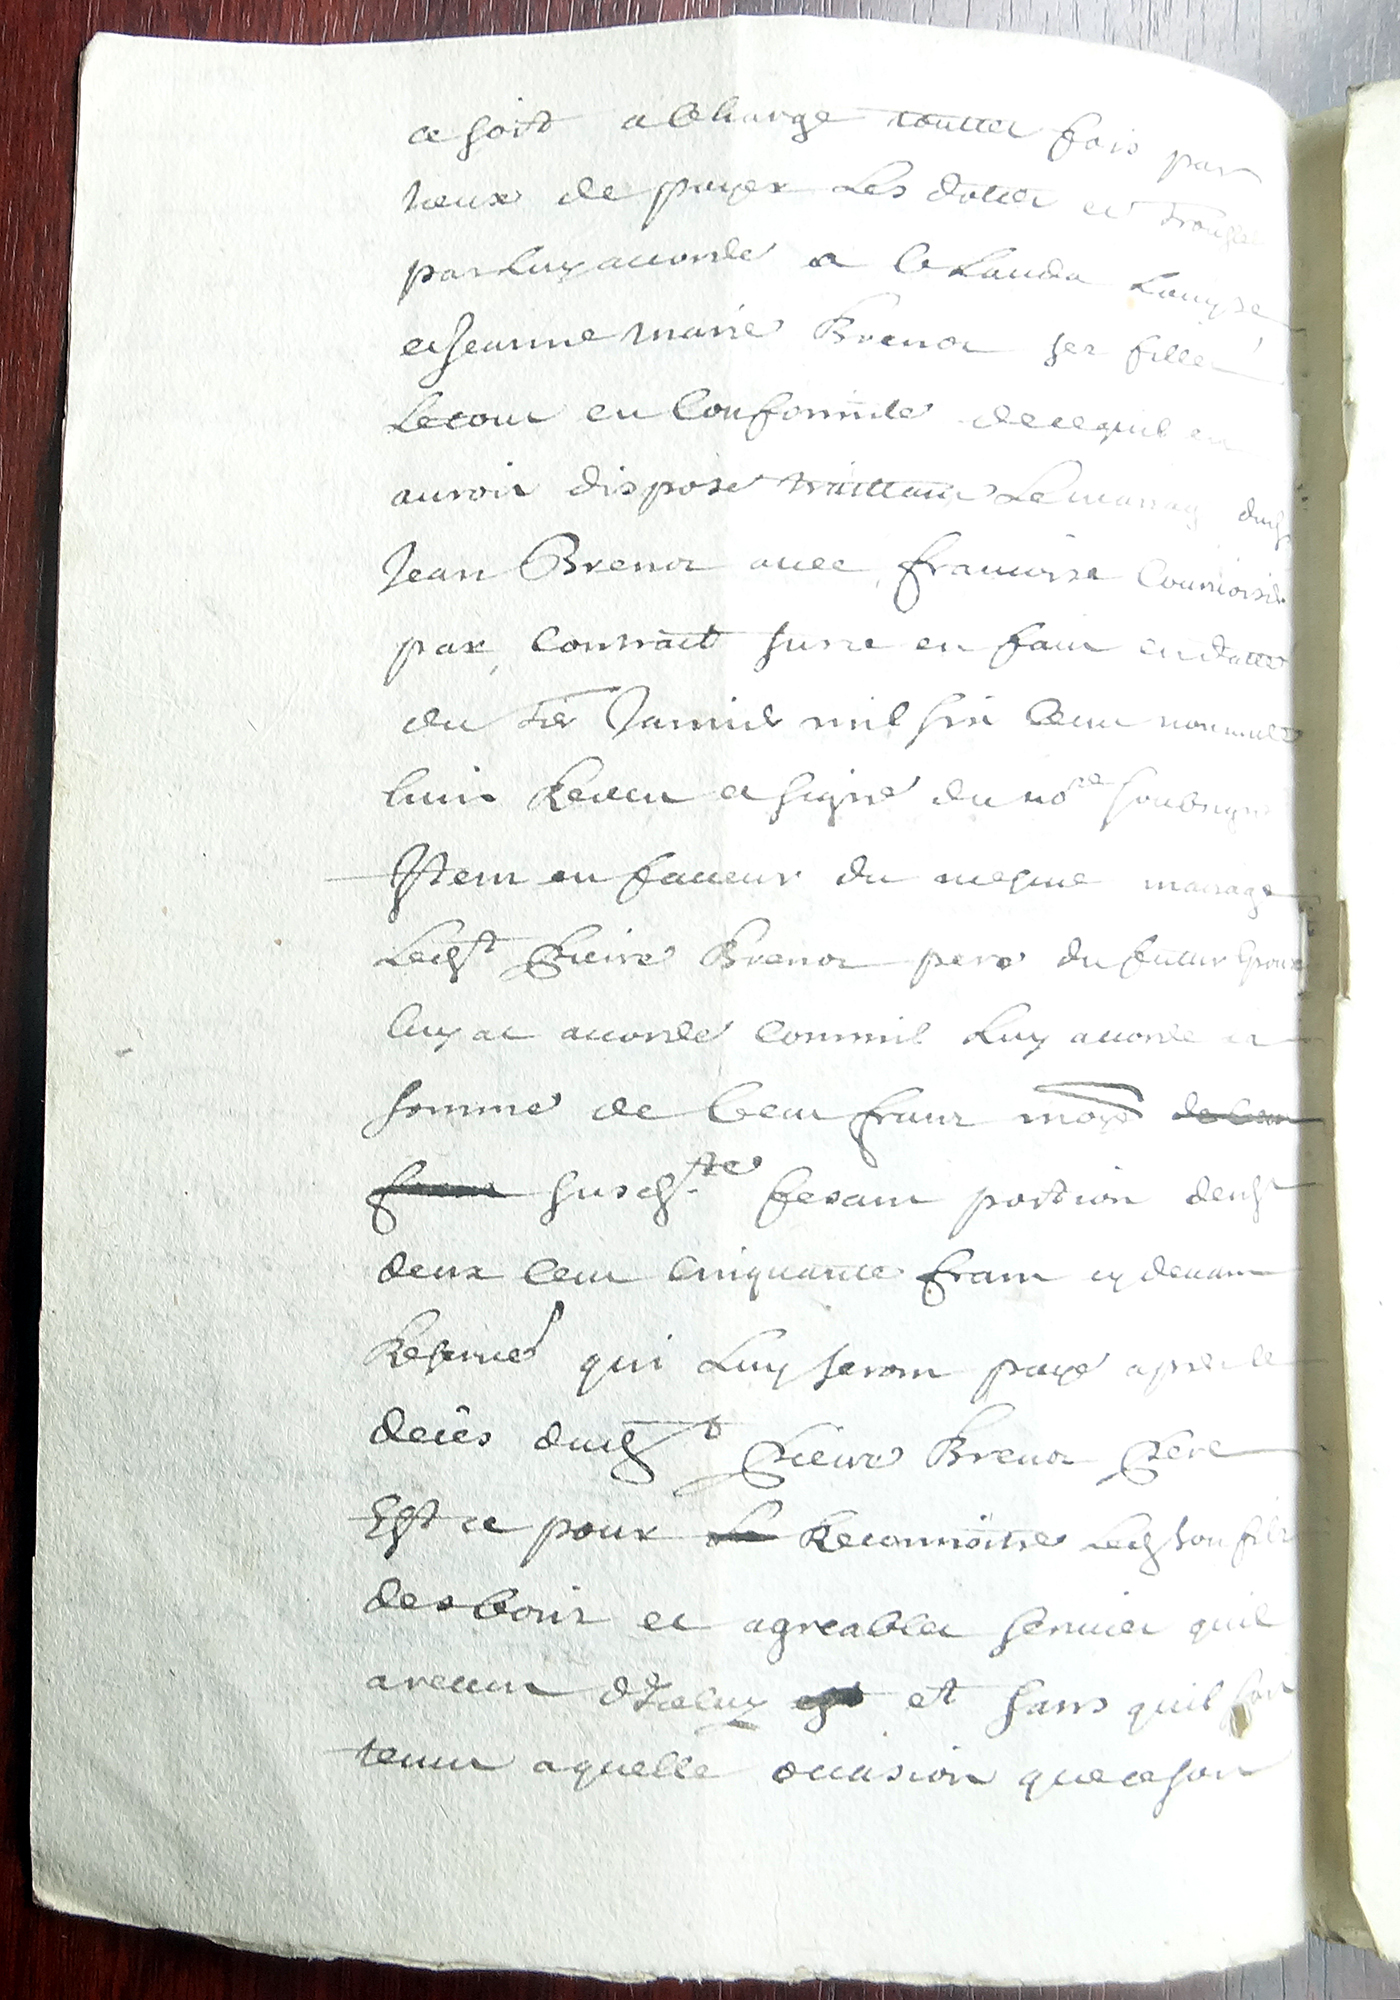 ce soit a Charge touttes fois par
Iceux de payer Les dottes et trousse
par luy accordé a Claudα Louyse
et Jeanne marie Brenot ses filles
Le tout en Conformité de ce quil en
auroit disposé traittant Le mariag dud
Jean Brenot avec francoise Courtois
par Contract sur ce en fait en datte
du Janvier mil six Cent nonante
huit Receu et signé du nore soubsigné
Item en faveur du mesme mariage
Ledt Pierre Brenot pere du futur Epoux
luy at accordé comm'il Luy accorde la
somme de Cent franc de Cent
franc susdte fesant portion desd
deux Cent Cinquante franc cy devant
Reservé qui Luy seront payé apres le
decès dudt Pierre Brenot Pere
Est ce pour Reconnoitre Led son fils
des bons et agreables services quil
a receu d'Iceluy et sans quil soit
tenu a quelle occasion que ce soit